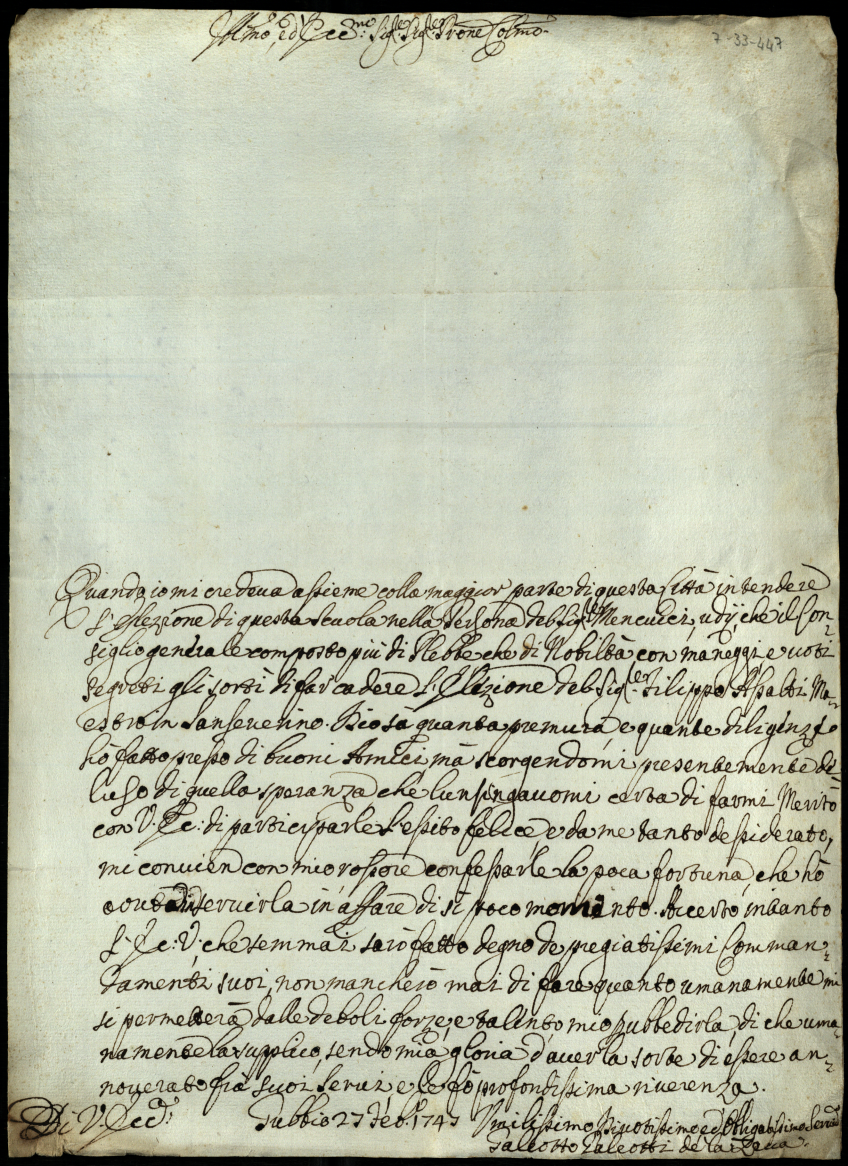 Illmo, ed Ecc.mo Sig.re Sig.re Prone Colmo
7-33-447
Quando io mi credeva assieme colla maggior parte di questa Città intendere
l'Elezione di questa Scuola nella Persona del Sig.re Mencucci, udij, che il Con-
siglio generale composto più di Plebbe che di Nobiltà con maneggi, e voti
segreti gli sortì di far cadere l'Elezione del Sig.re Filippo Assalti Ma-
estro in Sanseverino. Dio sà quanta premura, e quante diligenze
hò fatto presso di buoni Amici, mà scorgendomi presentemente de-
luso di quella speranza che lunsingavomi certa di farmi Merito
con V. Ecc: di participarle l'essito felice e da me tanto dessiderato,
mi convien con mio rossore confessarle la poca fortuna, che hò
servirla in affare di sì poco momento. Accerto intanto
l'Ecc: V: che semmai sarò fatto degno de pregiatissimi Comman-
damenti suoi, non mancherò mai di fare quanto umanamente mi
si permetterà dalle deboli forze, e talento mio p ubbedirla, di che uma-
namente la supplico, sendo mia gloria d'aver la sorte di essere an-
noverato frà suoi Servi, e le fò profondissima riverenza.
Di V. Ecc:
Gubbio 27 Feb. 1747
Umilissimo Divotissimo ed Obligatissimo Serv.
Galeotto Galeotti de la Zecca